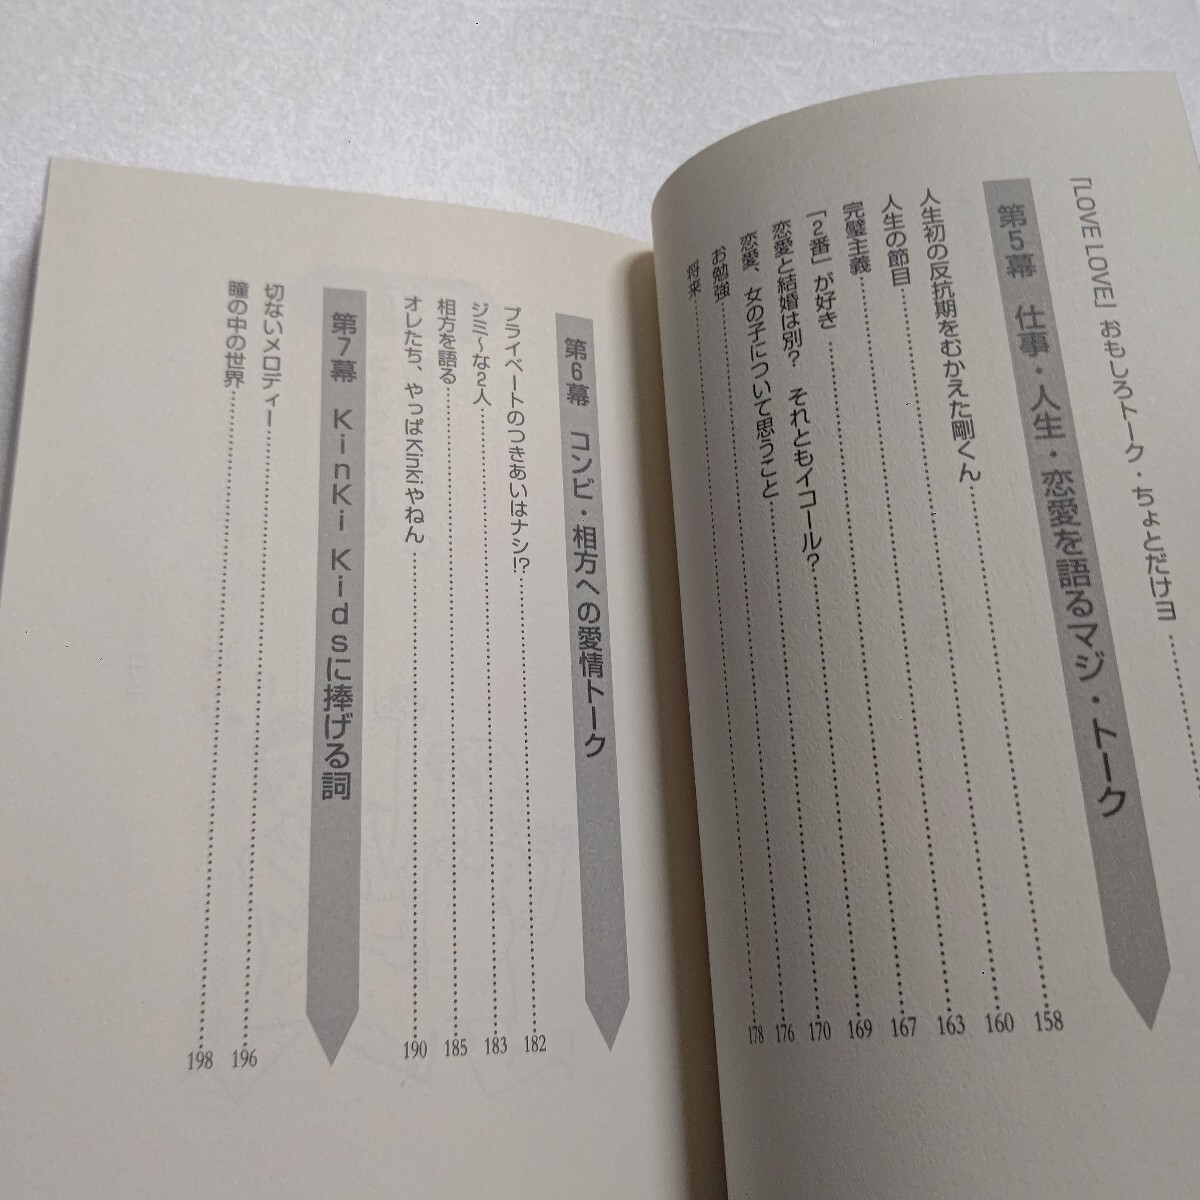 『LOVE LOVE』おもしろトーク・ちょとだけヨ
第5幕 仕事・人生・恋愛を語るマジ・トーク
人生初の反抗期をむかえた剛くん 158
人生の節目 160
完璧主義 163
「2番」が好き 167
恋愛と結婚は別? それともイコール? 169
恋愛、女の子について思うこと 170
お勉強 176
将来 178
第6幕 コンビ・相方への愛情トーク
プライベートのつきあいはナシ!? 182
ジミ〜な2人 183
相方を語る 185
オレたち、やっぱKinkiやねん 190
第7幕 KinKi Kidsに捧げる詞
切ないメロディー 196
瞳の中の世界 198